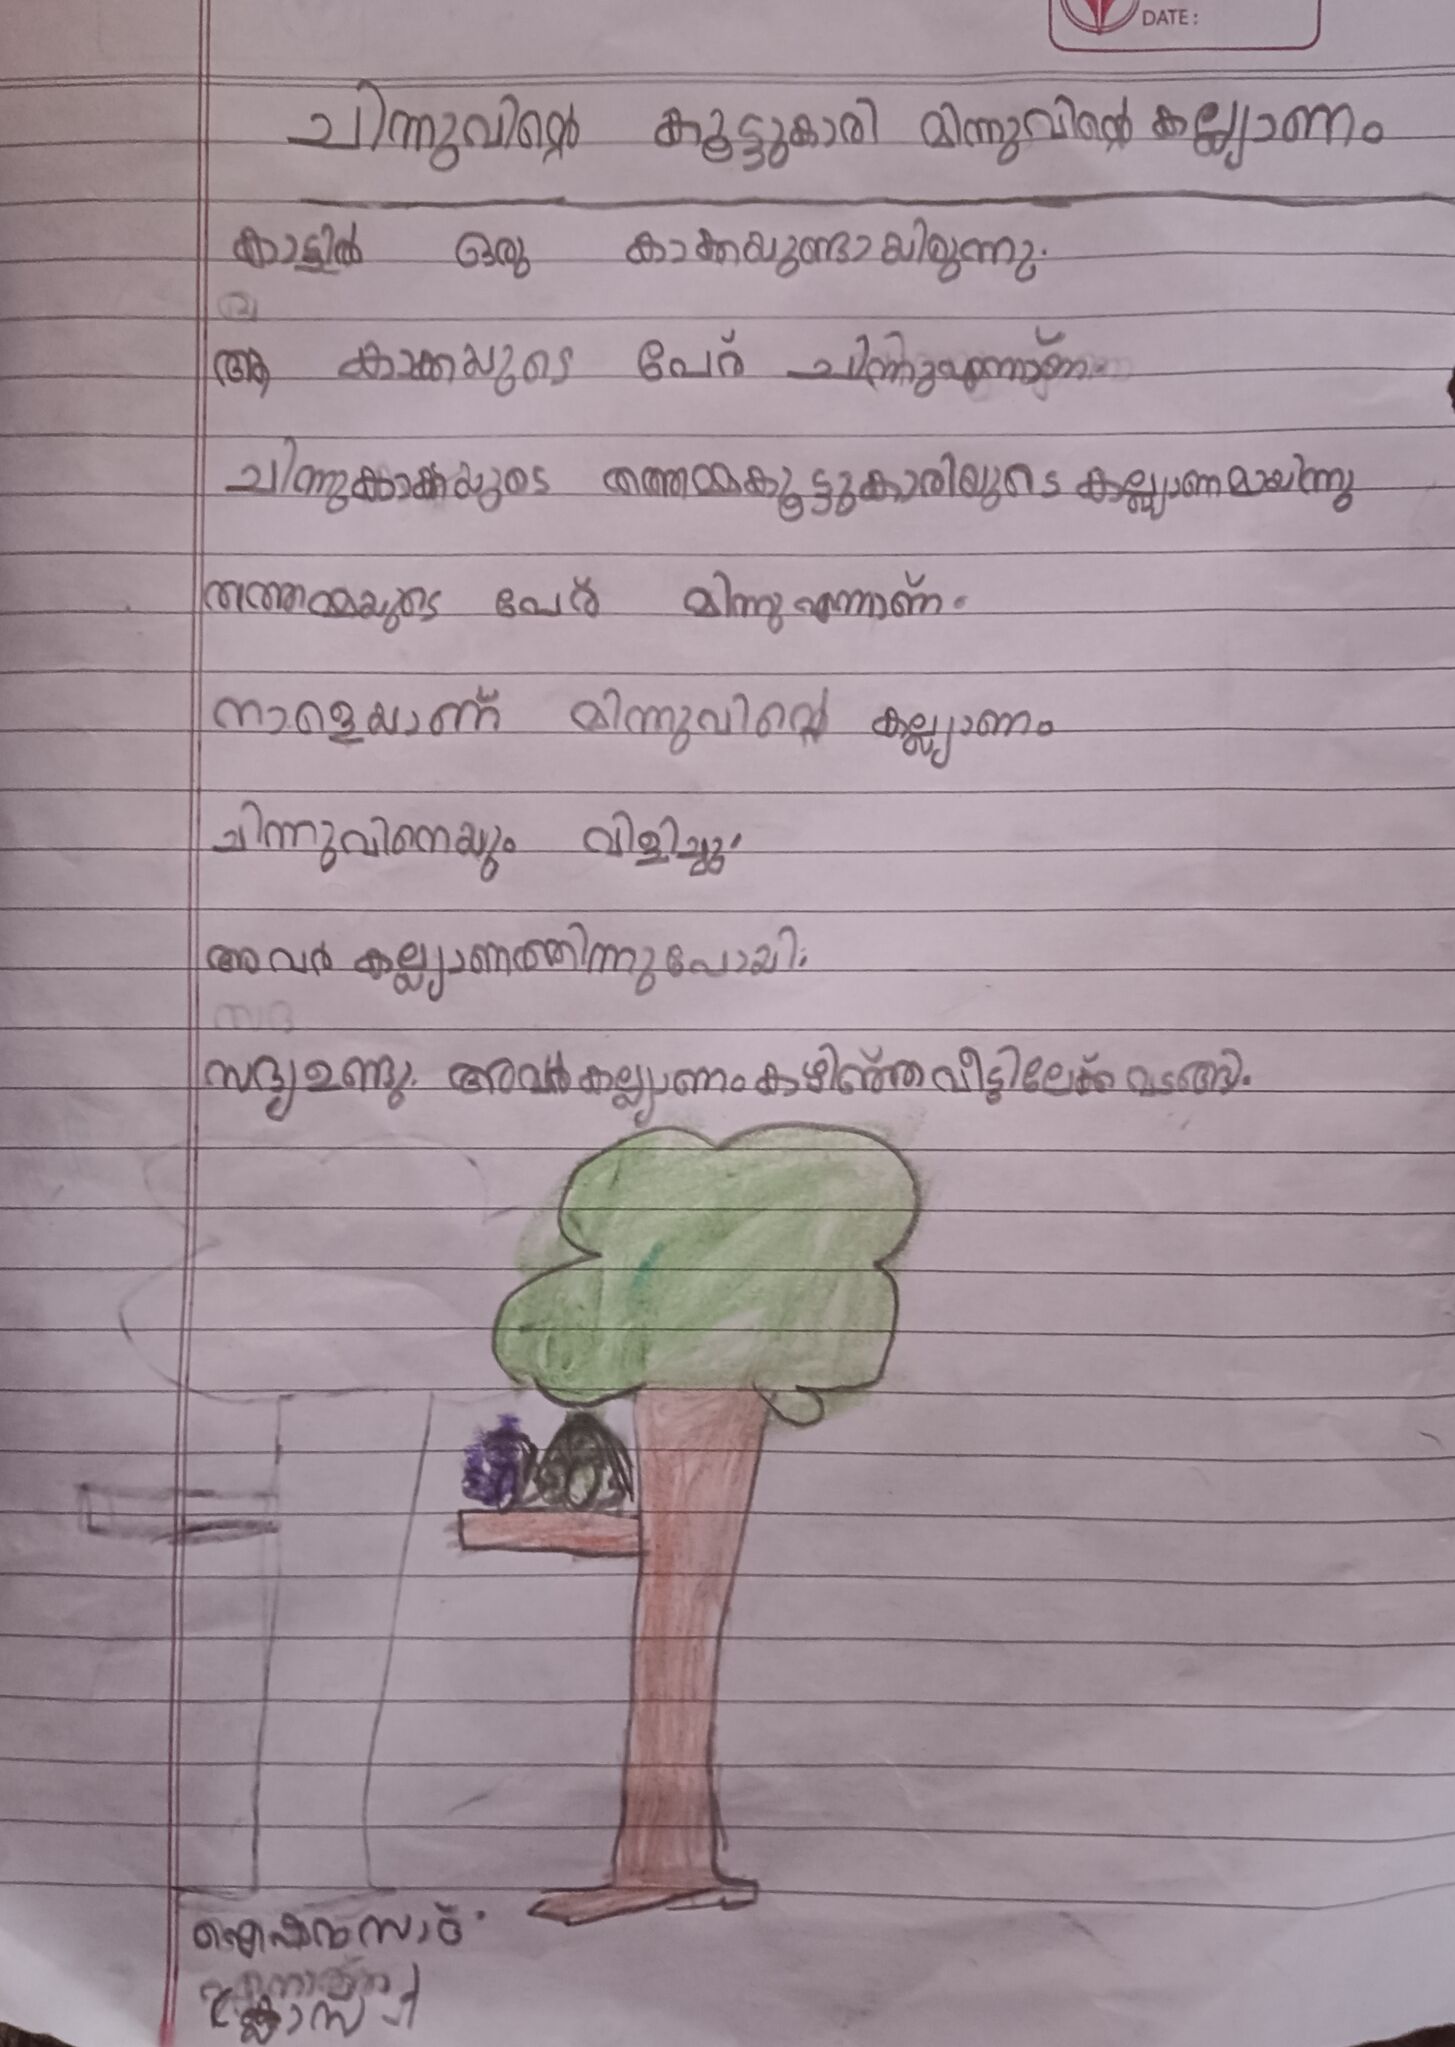 DATE:
ചിന്നുവിന്റെ കൂട്ടുകാരി മിന്നുവിന്റെ കല്ല്യാണം
കാട്ടിൽ ഒരു കാക്കയുണ്ടായിരുന്നു.
ആ കാക്കയുടെ പേര് ചിന്നുഎന്നാണ്.
ചിന്നുകാക്കയുടെ തത്തമ്മകൂട്ടുകാരിയുടെ കല്ല്യാണമായിന്നു
തത്തമ്മയുടെ പേര് മിന്നുഎന്നാണ്.
നാളെയാണ് മിന്നുവിന്റെ കല്ല്യാണം
ചിന്നുവിനെയും വിളിച്ചു.
അവർ കല്ല്യാണത്തിന്നുപോയി.
സദ്യഉണ്ടു. അവർകല്ല്യാണംകഴിഞ്ഞ്വീട്ടിലേക്ക് മടങ്ങി.
ക്ലാസ് 1